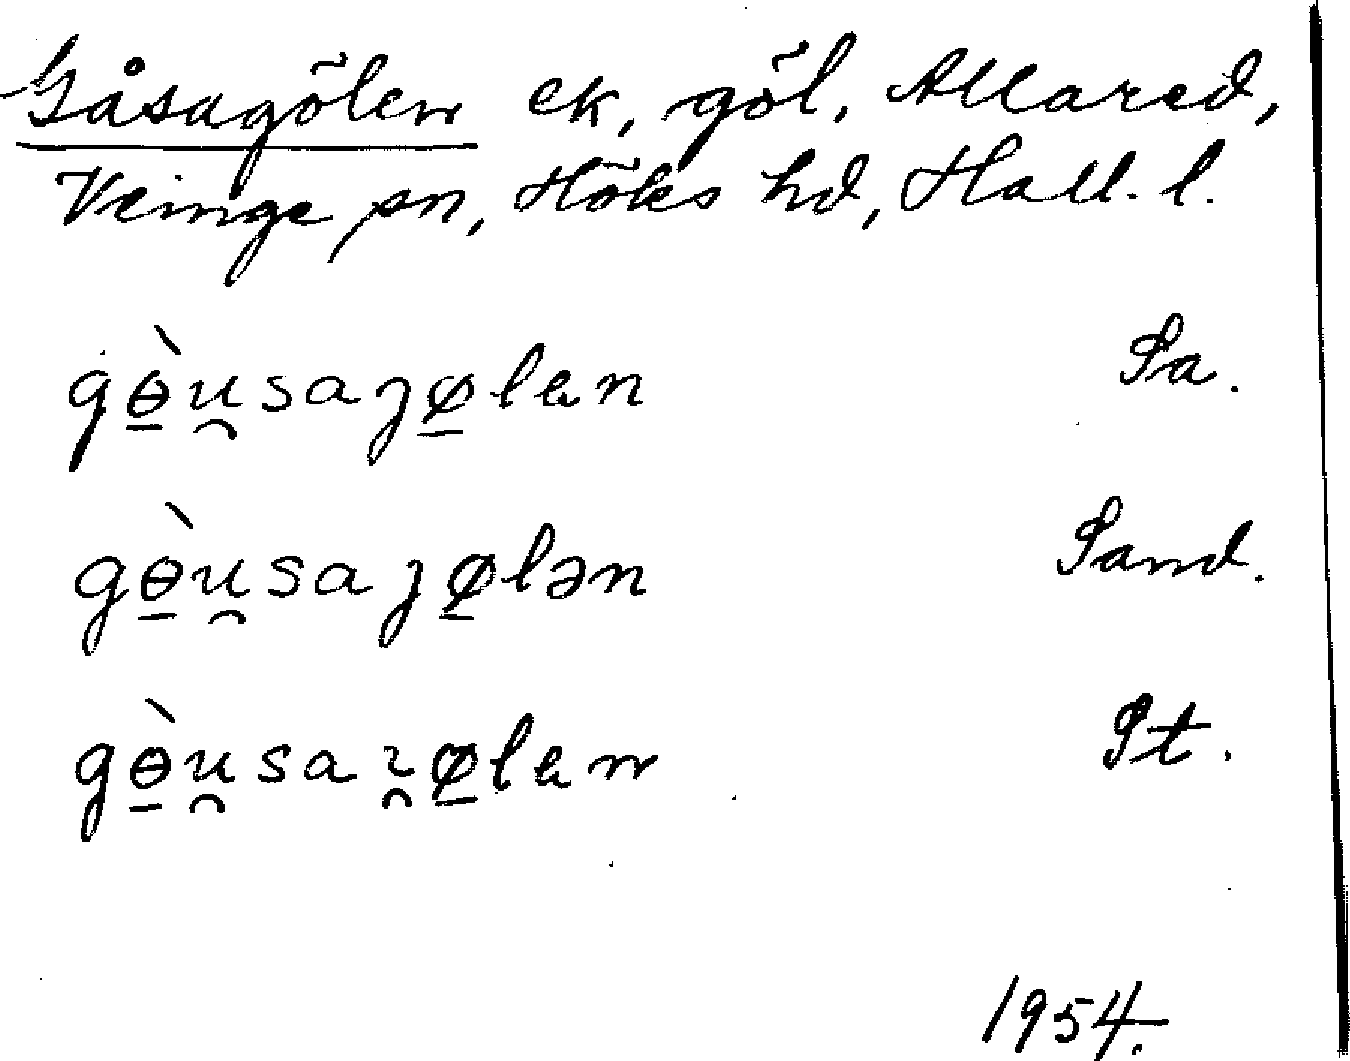 Gåsagölen ek, göl, Allared,
Veinge sn, Höks hd, Hall. l.
gɵ̱̀u̯saʒø̱lɐn Sa.
gɵ̱̀u̯saʒø̱lən Sand.
gɵ̱̀u̯saɿ̯ø̱lɐn St.
1954.